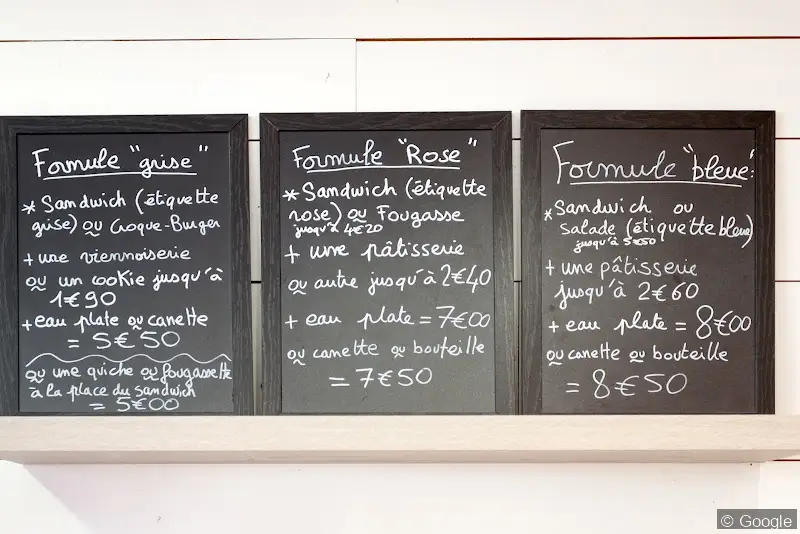 Formule "grise"
* Sandwich (étiquette
grise) ou Croque-Burger
+ une viennoiserie
ou un cookie jusqu'à
1€90
+ eau plate ou canette
= 5€50
ou une quiche ou fougassette
à la place du sandwich
= 5€00
Formule "Rose"
* Sandwich (étiquette
rose) ou Fougasse
jusqu'à 4€20
+ une pâtisserie
ou autre jusqu'à 2€40
+ eau plate = 7€00
ou canette ou bouteille
= 7€50
Formule "bleue":
* Sandwich ou
salade (étiquette bleue)
jusqu'à 5€50
+ une pâtisserie
jusqu'à 2€60
+ eau plate = 8€00
ou canette ou bouteille
= 8€50
© Google